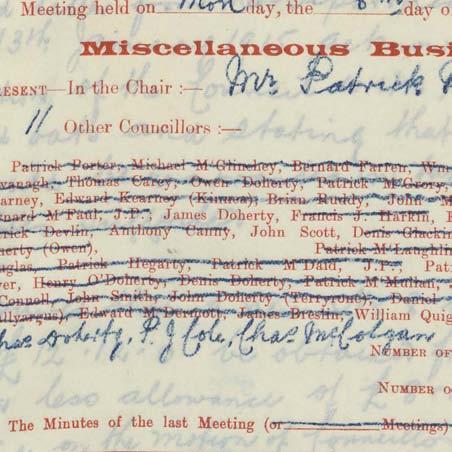 Meeting held on Mon day, the 8 day o
Miscellaneous Busi
ESENT—In the Chair :— Mr. Patrick
11 Other Councillors :—
Patrick Porter, Michael M'Glinchey, Bernard Farren, W
vanagh, Thomas Carey, Owen Doherty, Patrick M'Grory,
earney, Edward Kearney (Kinnea), Brian Ruddy, John M
rnard M'Faul, J.P., James Doherty, Francis J. Harkin, H
rick Devlin, Anthony Canny, John Scott, Denis Glackin
herty (Owen), Patrick M'Laughlin
uglas, Patrick Hegarty, Patrick M'Daid, J.P., Pat
ver, Henry O'Doherty, Denis Doherty, Patrick M'Mullan,
Connell, John Smith, John Doherty (Terryrone), Daniel
allyargus), Edward M'Dermott, James Breslin, William Quig
Chas Doherty, P. J Cole, Chas McColgan
NUMBER OF
NUMBER O
The Minutes of the last Meeting (or Meetings)